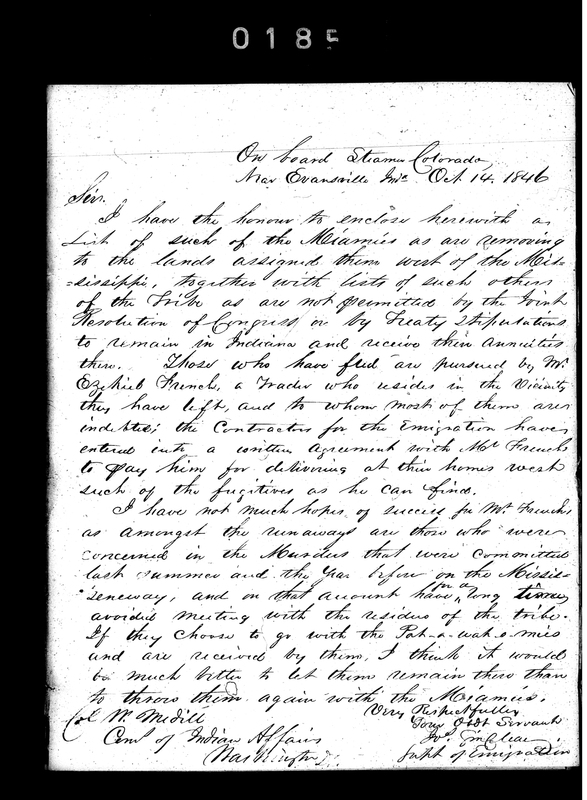 0185
On board Steamer Colorado
Near Evansville Inda Oct. 14. 1846
Sir.
I have the honour to enclose herewith a
List of such of the Miamies as are removing
to the lands assigned them west of the Mis-
=sissippi, together with lists of such others
of the Tribe as are not permitted by the Joint
Resolution of Congress or by Treaty Stipulations
to remain in Indiana and receive their annuities
there. Those who have fled are pursued by Mr.
Ezekiel French, a Trader who resides in the Vicinity
they have left, and to whom most of them are
indebted; the Contractors for the Emigration have
entered into a written Agreement with Mr French
to pay him for delivering at their homes west
such of the fugitives as he can find.
I have not much hopes of success for Mr. French,
as amongst the runaways are those who were
concerned in the Murders that were committed
last summer and the Year before on the Missis-
"seneway, and on that account have long
avoided meeting with the residue of the tribe.
If they choose to go with the Pot-a-wat-o-mies
and are received by them, I think it would
be much better to let them remain there than
to throw them again with the Miamies.
Very Respectfully
Your Obdt Servant
Jos. Sinclear
Supt of Emigration
Col Wm Medill
Coms of Indian Affairs
Washington